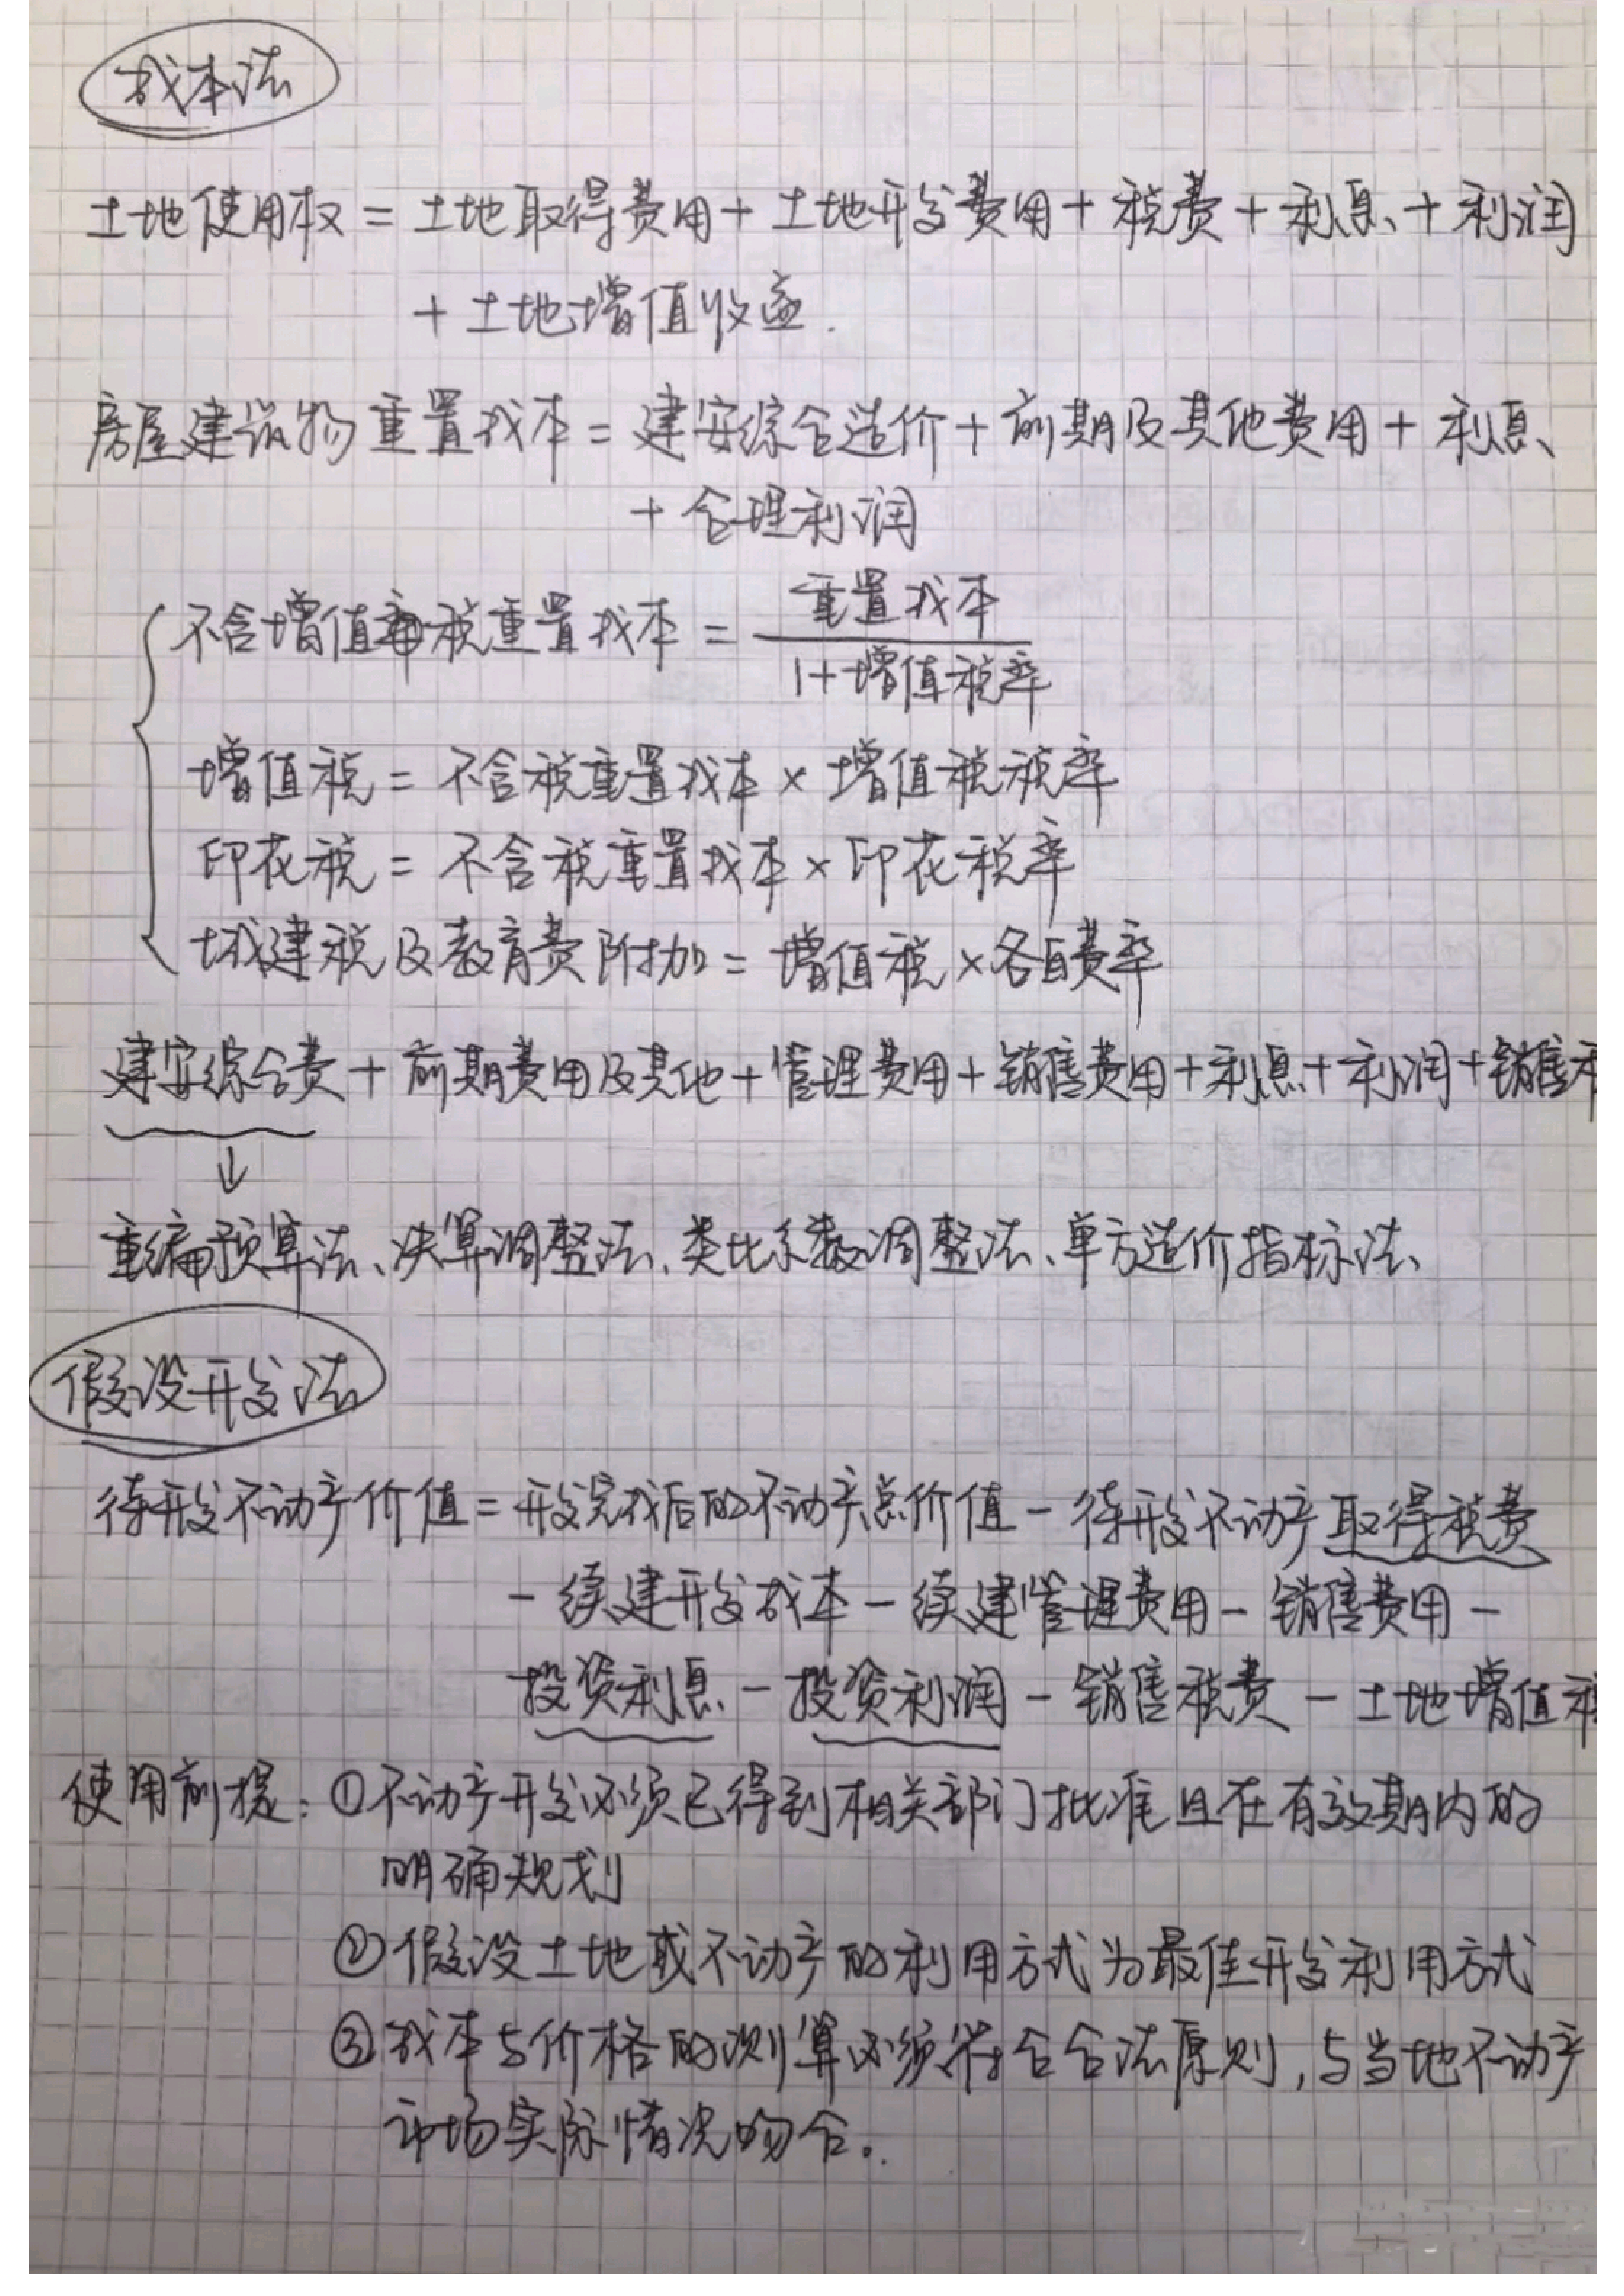 成本法
土地使用权 = 土地取得费用 + 土地开发费用 + 税费 + 利息 + 利润
+ 土地增值收益.
房屋建筑物重置成本 = 建安综合造价 + 前期及其他费用 + 利息
+ 合理利润
不含增值税重置成本 = 重置成本
1+增值税率
增值税 = 不含税重置成本 × 增值税税率
印花税 = 不含税重置成本 × 印花税率
城建税及教育费附加 = 增值税 × 各自费率
建安综合费 + 前期费用及其他 + 管理费用 + 销售费用 + 利息 + 利润 + 销售
↓
重编预算法、决算调整法、类比系数调整法、单方造价指标法、
假设开发法
待开发不动产价值 = 开发完成后的不动产总价值 - 待开发不动产取得税费
- 续建开发成本 - 续建管理费用 - 销售费用 -
投资利息 - 投资利润 - 销售税费 - 土地增值
使用前提: ①不动产开发必须已得到相关部门批准且在有效期内的
明确规划
②假设土地或不动产的利用方式为最佳开发利用方式
③成本与价格的测算必须符合合法原则,与当地不动产
市场实际情况吻合。